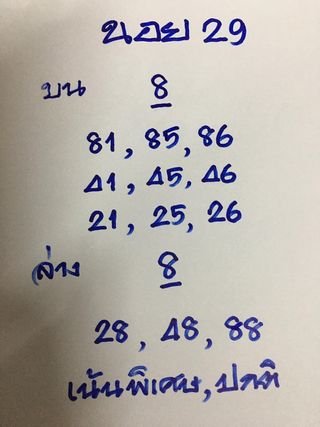 ฃอย 29
บน 8
81, 85, 86
41, 45, 46
21, 25, 26
ล่าง 8
28, 48, 88
เน้นพิเศษ, ปกติ